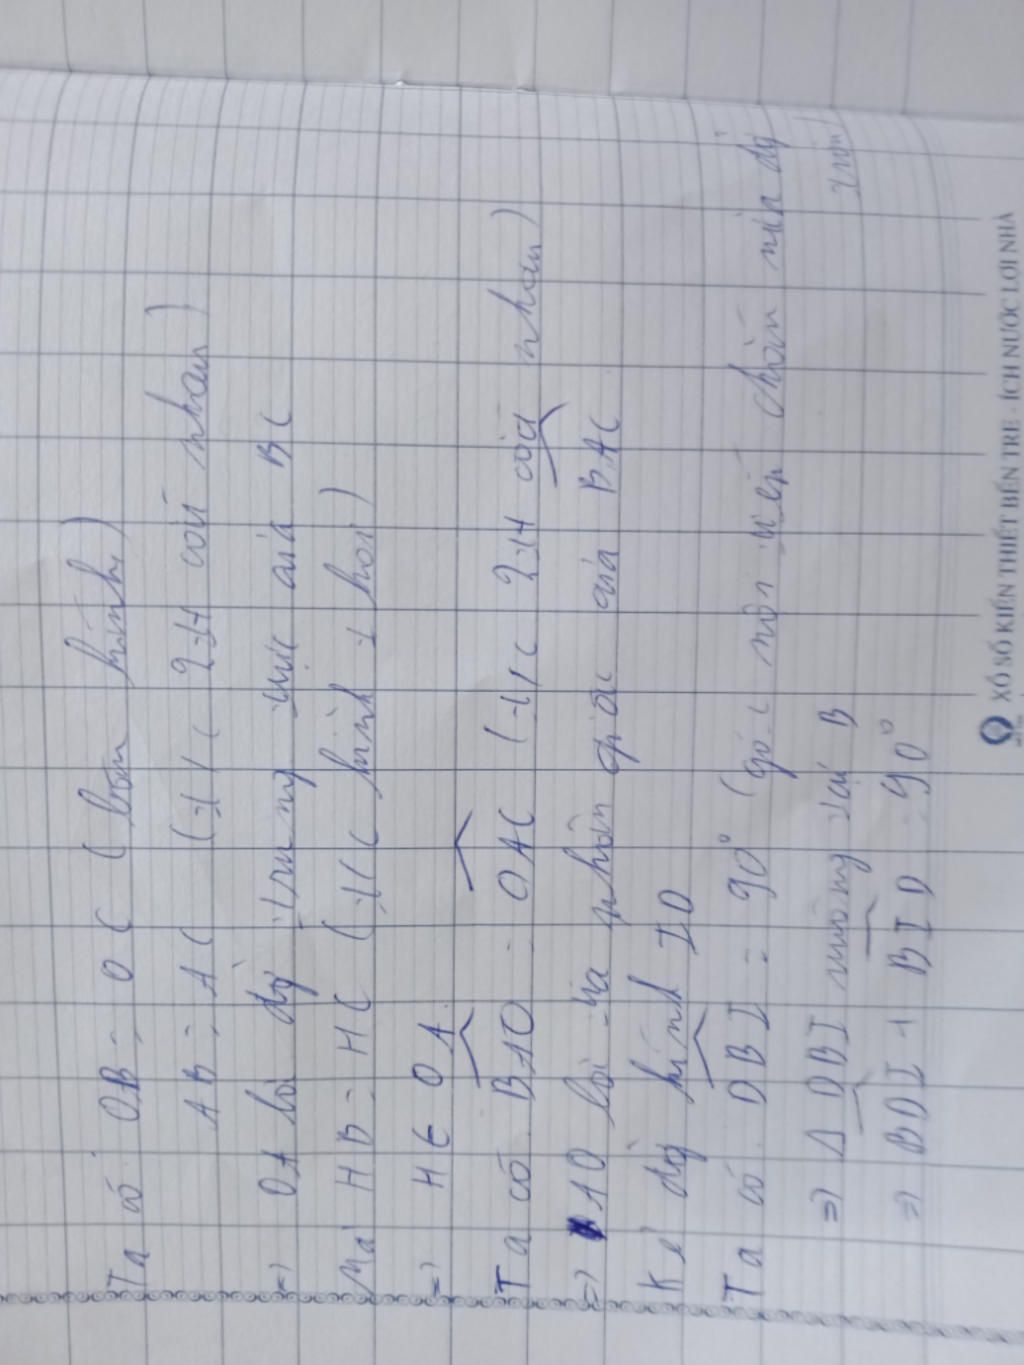 Ta có OB = OC (bán kính)
AB = AC (t/c 2tt cắt nhau)
=> OA là đg trung trực của BC
Mà HB = HC (t/c hình thoi)
=> H ∈ OA
Ta có BAO = OAC (t/c 2tt cắt nhau)
=> AO là tia phân giác của BAC
Kẻ đg kính ID
Ta có DBI = 90° (góc nội tiếp chắn nửa đg tròn)
=> Δ DBI vuông tại B
=> BDI + BID = 90°
XỔ SỐ KIẾN THIẾT BẾN TRE - ÍCH NƯỚC LỢI NHÀ